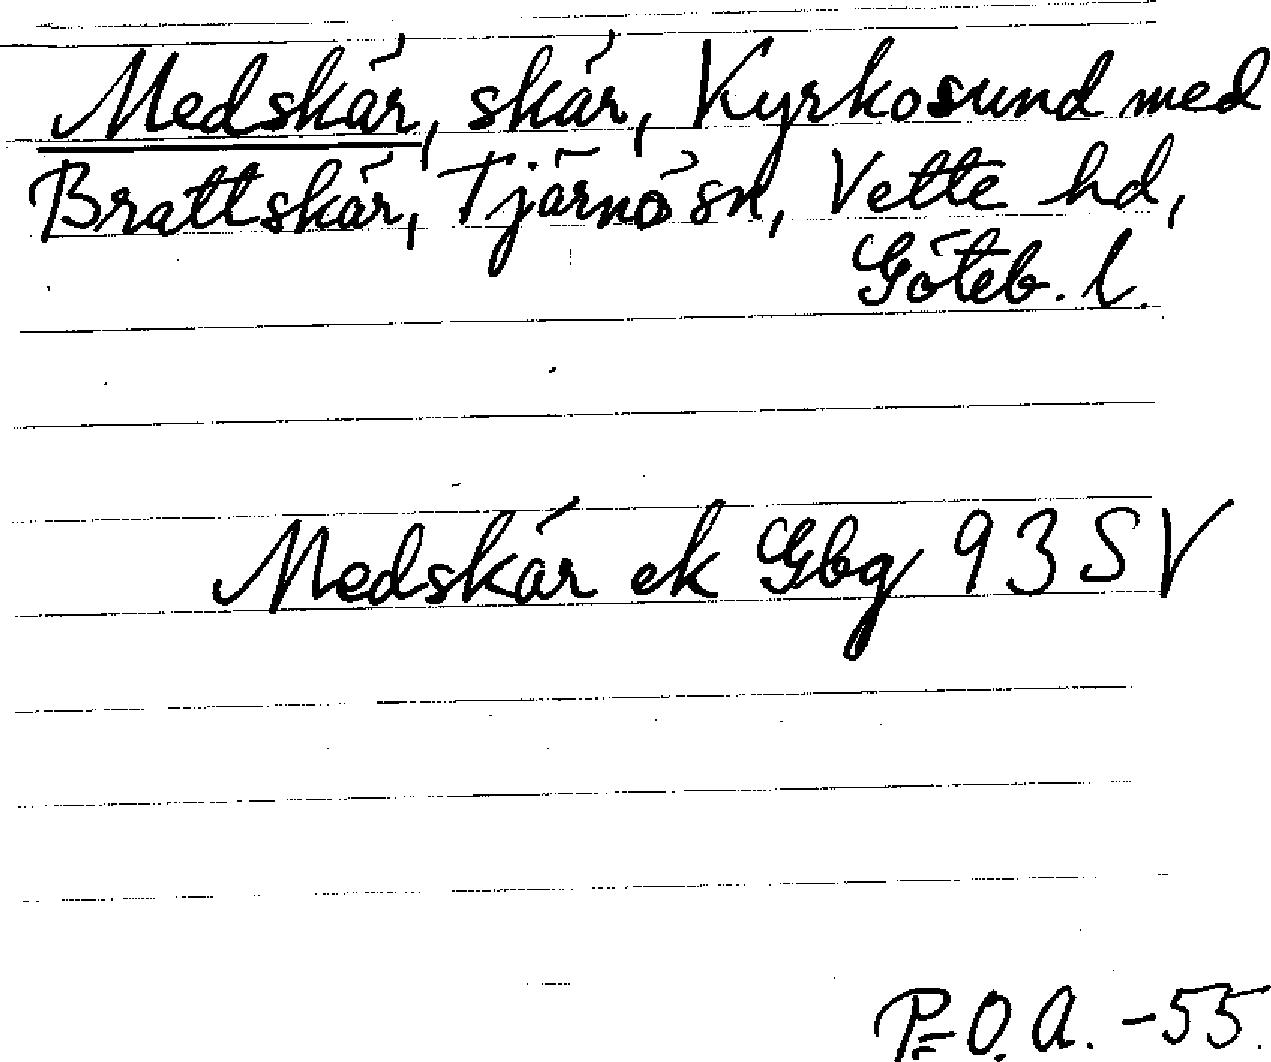 Medskär, skär, Kyrkosund med
Brattskär, Tjärnö sn, Vette hd,
Göteb. l.
Medskär ek Gbg 93 SV
P.O.A. -55.